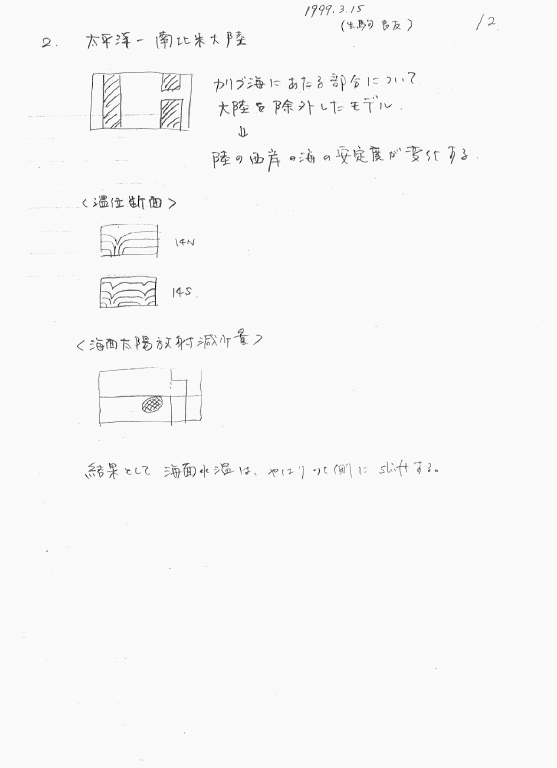 1999.3.15
(生駒 )
12
2. 太平洋-南北米大陸
カリブ海にあたる部分について
大陸を除外したモデル.
⇓
陸の西岸の海の安定度が変化する.
<温位断面>
14N
14S.
<海面太陽放射減少量>
結果として 海面水温は、やはり 側に shiftする。